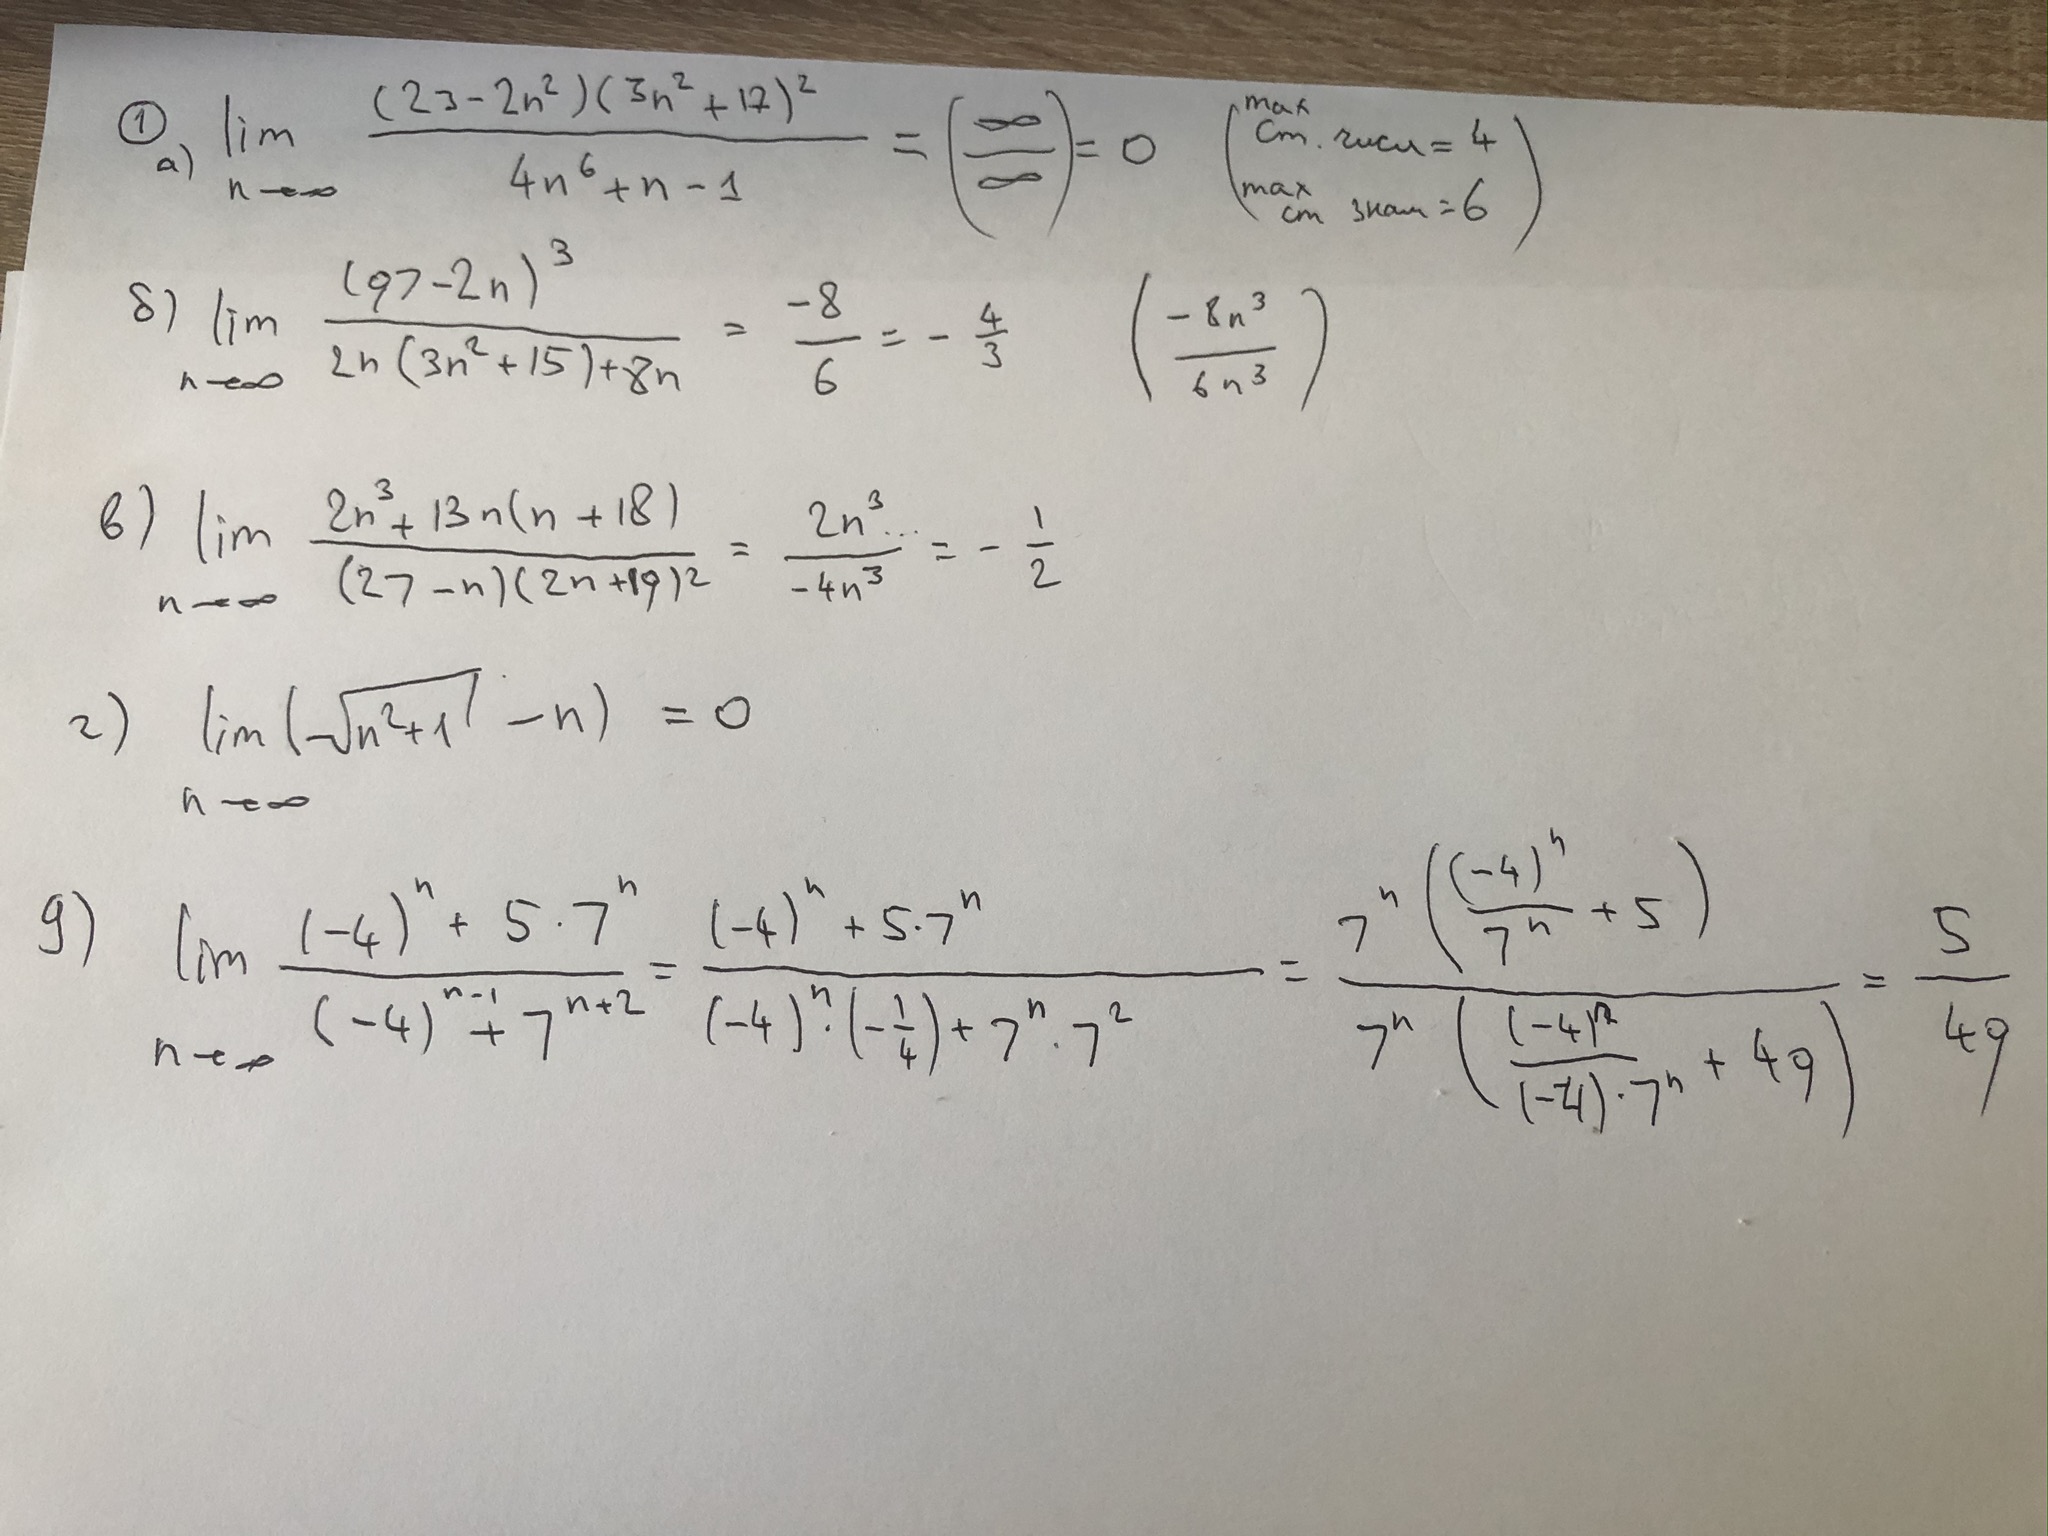 ① а) lim n→∞ (23-2n²)(3n²+17)² / 4n⁶+n-1 = (∞/∞) = 0 (max ст. числ = 4 max ст знам = 6)
б) lim n→∞ (97-2n)³ / 2n(3n²+15)+8n = -8/6 = -4/3 (-8n³/6n³)
в) lim n→∞ 2n³+13n(n+18) / (27-n)(2n+19)² = 2n³... / -4n³ = -1/2
г) lim n→∞ (√n²+1 -n) = 0
д) lim n→∞ (-4)ⁿ + 5·7ⁿ / (-4)ⁿ⁻¹+7ⁿ⁺² = (-4)ⁿ + 5·7ⁿ / (-4)ⁿ·(-1/4)+7ⁿ·7² = 7ⁿ((-4)ⁿ/7ⁿ + 5) / 7ⁿ((-4)ⁿ/(-4)·7ⁿ + 49) = 5/49